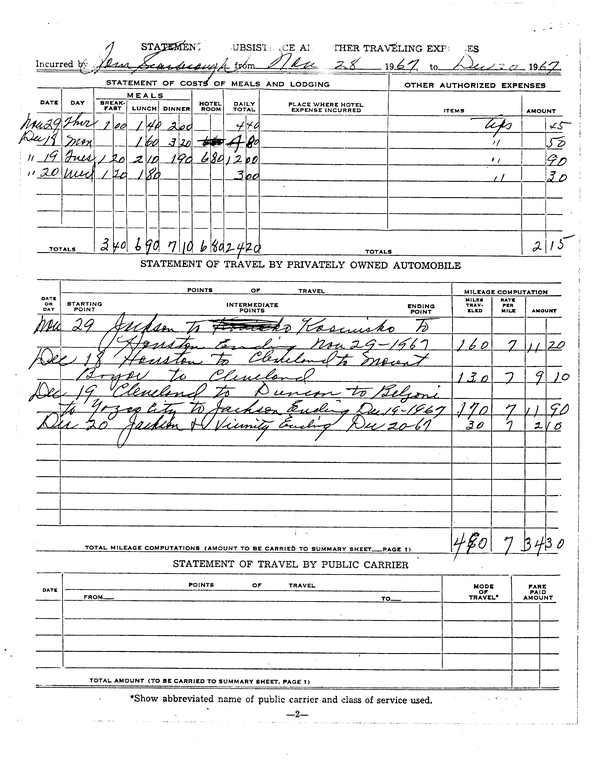 STATEMENT UBSIST CE AI THER TRAVELING EXP ES
Incurred by Tom Scarbrough from Nov 28 1967 to Dec 20 1967
STATEMENT OF COSTS OF MEALS AND LODGING OTHER AUTHORIZED EXPENSES
MEALS
DATE DAY BREAK-FAST LUNCH DINNER HOTEL ROOM DAILY TOTAL PLACE WHERE HOTEL EXPENSE INCURRED ITEMS AMOUNT
Nov 29 Thur 1 00 1 40 2 00 4 40 tips 45
Dec 18 Mon 1 60 3 20 4 80 " 50
" 19 Tues 1 20 2 10 1 90 6 80 12 00 " 90
" 20 Wed 1 20 1 80 3 00 " 30
TOTALS 3 40 6 90 7 10 6 80 24 20 TOTALS 2 15
STATEMENT OF TRAVEL BY PRIVATELY OWNED AUTOMOBILE
POINTS OF TRAVEL MILEAGE COMPUTATION
DATE OR DAY STARTING POINT INTERMEDIATE POINTS ENDING POINT MILES TRAV-ELED RATE PER MILE AMOUNT
Nov 29 Jackson to Kosciusko to
Houston Ending Nov 29-1967 160 7 11 20
Dec 18 Houston to Cleveland to Mount
Bayou to Cleveland 130 7 9 10
Dec 19 Cleveland to Duncan to Belzoni
to Yazoo City to Jackson Ending Dec 19-1967 170 7 11 90
Dec 20 Jackson & Vicinity Ending Dec 20-67 30 7 2 10
TOTAL MILEAGE COMPUTATIONS (AMOUNT TO BE CARRIED TO SUMMARY SHEET—PAGE 1) 490 7 34 30
STATEMENT OF TRAVEL BY PUBLIC CARRIER
DATE POINTS OF TRAVEL MODE OF TRAVEL* FARE PAID AMOUNT
FROM— TO—
TOTAL AMOUNT (TO BE CARRIED TO SUMMARY SHEET. PAGE 1)
*Show abbreviated name of public carrier and class of service used.
—2—